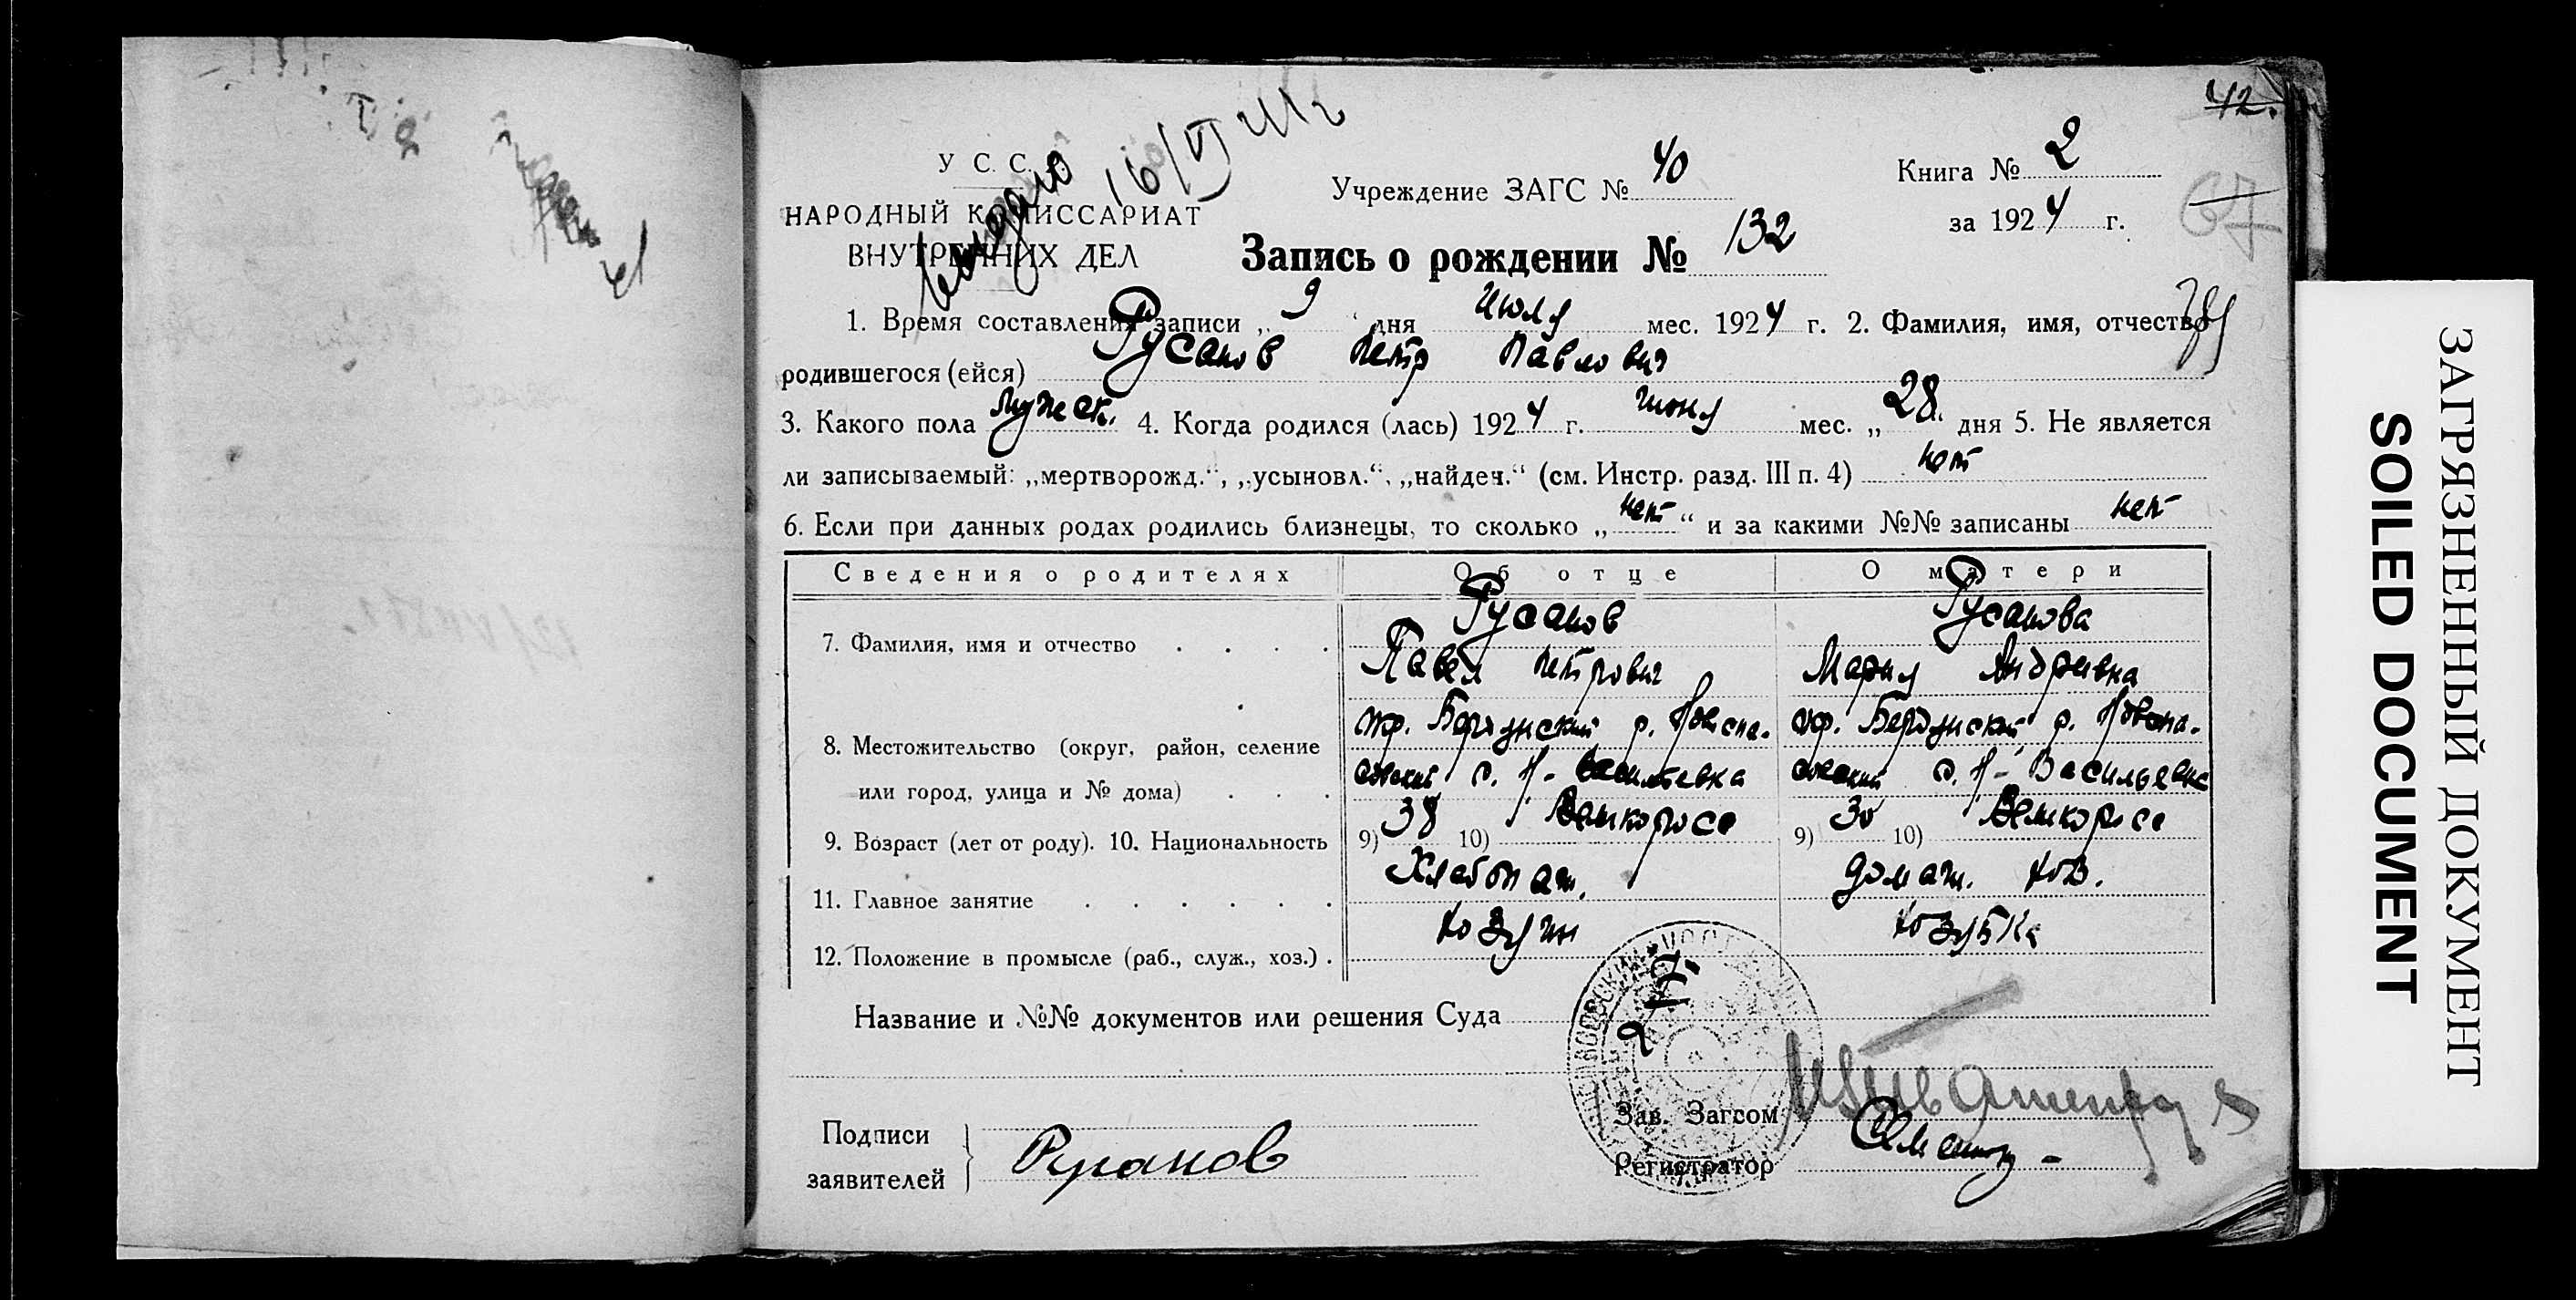 42.
У. С. С.
Учреждение ЗАГС № 40
Книга № 2
НАРОДНЫЙ КОМИССАРИАТ
за 1924 г.
67
ВНУТРЕННИХ ДЕЛ
16/VI
Запись о рождении № 132
1. Время составления записи „ 9 " дня Июля мес. 1924 г. 2. Фамилия, имя, отчество
родившегося (ейся) Русанов Петр Павлович
3. Какого пола мужск. 4. Когда родился (лась) 1924 г. июня мес. „ 28 " дня 5. Не является
ли записываемый: „мертворожд.“, „усыновл.“, „найден.“ (см. Инстр. разд. III п. 4) нет
6. Если при данных родах родились близнецы, то сколько „ нет “ и за какими №№ записаны нет
Сведения о родителях Об отце О матери
Русанов Русанова
7. Фамилия, имя и отчество . . . .
Павел Петрович Мария Андревна
окр. Бердянский р. окр. Бердянский р.
8. Местожительство (округ, район, селение
с. Н-Васильевка с. Н-Васильевка
или город, улица и № дома) . . .
9. Возраст (лет от роду). 10. Национальность 9) 38 10) Великоросс 9) 30 10) Великоросс
Хлебопаш. домаш. хоз.
11. Главное занятие . . . . . .
хозяин хозяйка
12. Положение в промысле (раб., служ., хоз.) .
Название и №№ документов или решения Суда
Зав. Загсом
Подписи
заявителей Русанов
Регистратор
ЗАГРЯЗНЕННЫЙ ДОКУМЕНТ
SOILED DOCUMENT